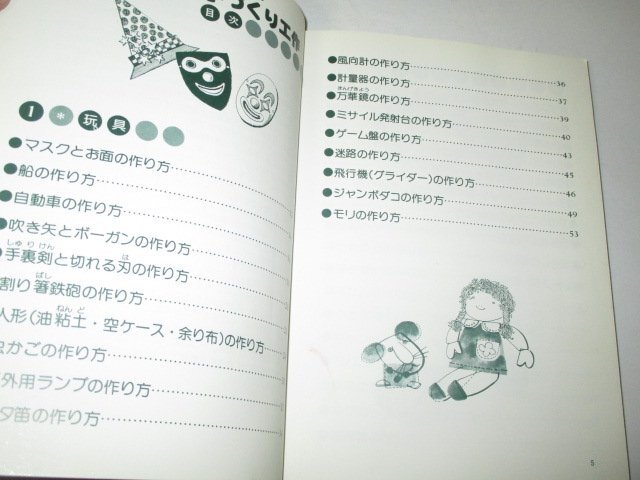 っくり工作
目次
1 * 玩具
●マスクとお面の作り方
●船の作り方
●自動車の作り方
●吹き矢とボーガンの作り方
●手裏剣と切れる刃の作り方
しゅりけん は
割り箸鉄砲の作り方
ばし
人形(油粘土・空ケース・余り布)の作り方
ねんど
かごの作り方
外用ランプの作り方
笛の作り方
●風向計の作り方 36
●計量器の作り方 37
●万華鏡の作り方 39
まんげきょう
●ミサイル発射台の作り方 40
●ゲーム盤の作り方 43
●迷路の作り方 45
●飛行機(グライダー)の作り方 46
●ジャンボダコの作り方 49
●モリの作り方 53
5